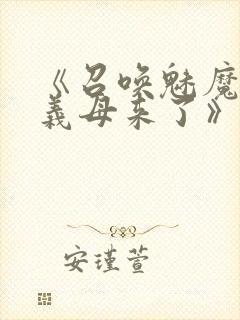 《召唤魅魔
义母来了》
安瑾萱